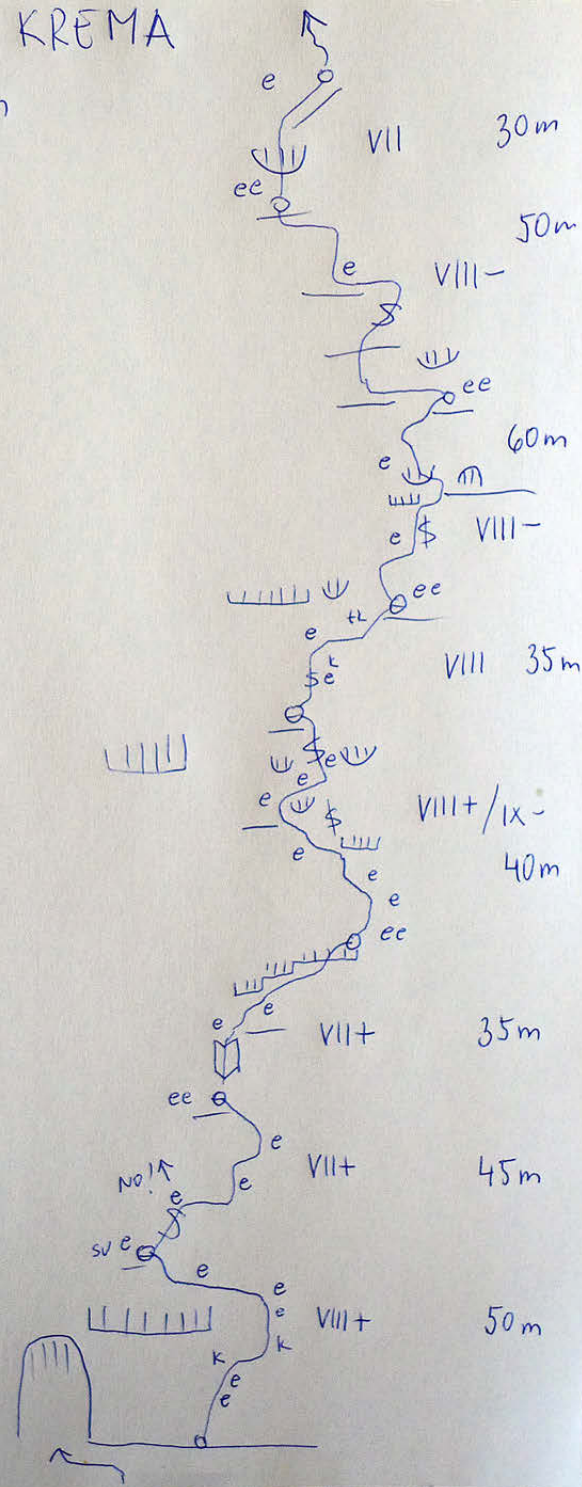 KREMA
e
VII 30m
ee
50m
e VIII-
ee
60m
e
e VIII-
ee
tk
e
k
e VIII 35m
e
e
e VIII+/IX-
e
e 40m
e
ee
e
e VII+ 35m
ee
e
NO! VII+ 45m
e e
sv e
e e
e VIII+ 50m
k k
e
e